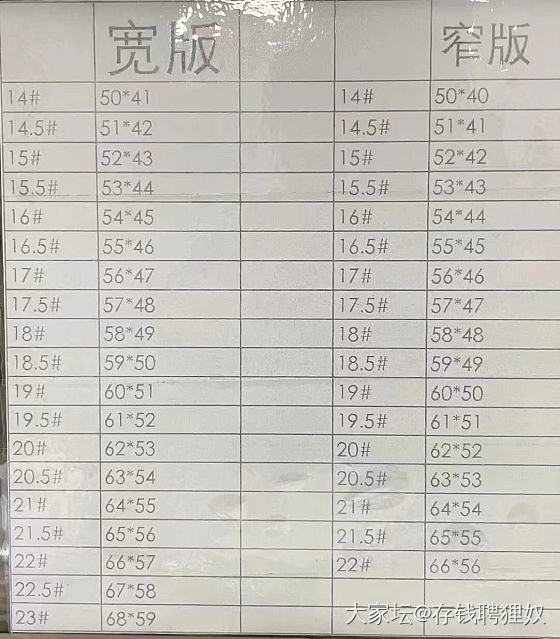 宽版 窄版
14# 50*41 14# 50*40
14.5# 51*42 14.5# 51*41
15# 52*43 15# 52*42
15.5# 53*44 15.5# 53*43
16# 54*45 16# 54*44
16.5# 55*46 16.5# 55*45
17# 56*47 17# 56*46
17.5# 57*48 17.5# 57*47
18# 58*49 18# 58*48
18.5# 59*50 18.5# 59*49
19# 60*51 19# 60*50
19.5# 61*52 19.5# 61*51
20# 62*53 20# 62*52
20.5# 63*54 20.5# 63*53
21# 64*55 21# 64*54
21.5# 65*56 21.5# 65*55
22# 66*57 22# 66*56
22.5# 67*58
23# 68*59
大家坛@存钱聘狸奴